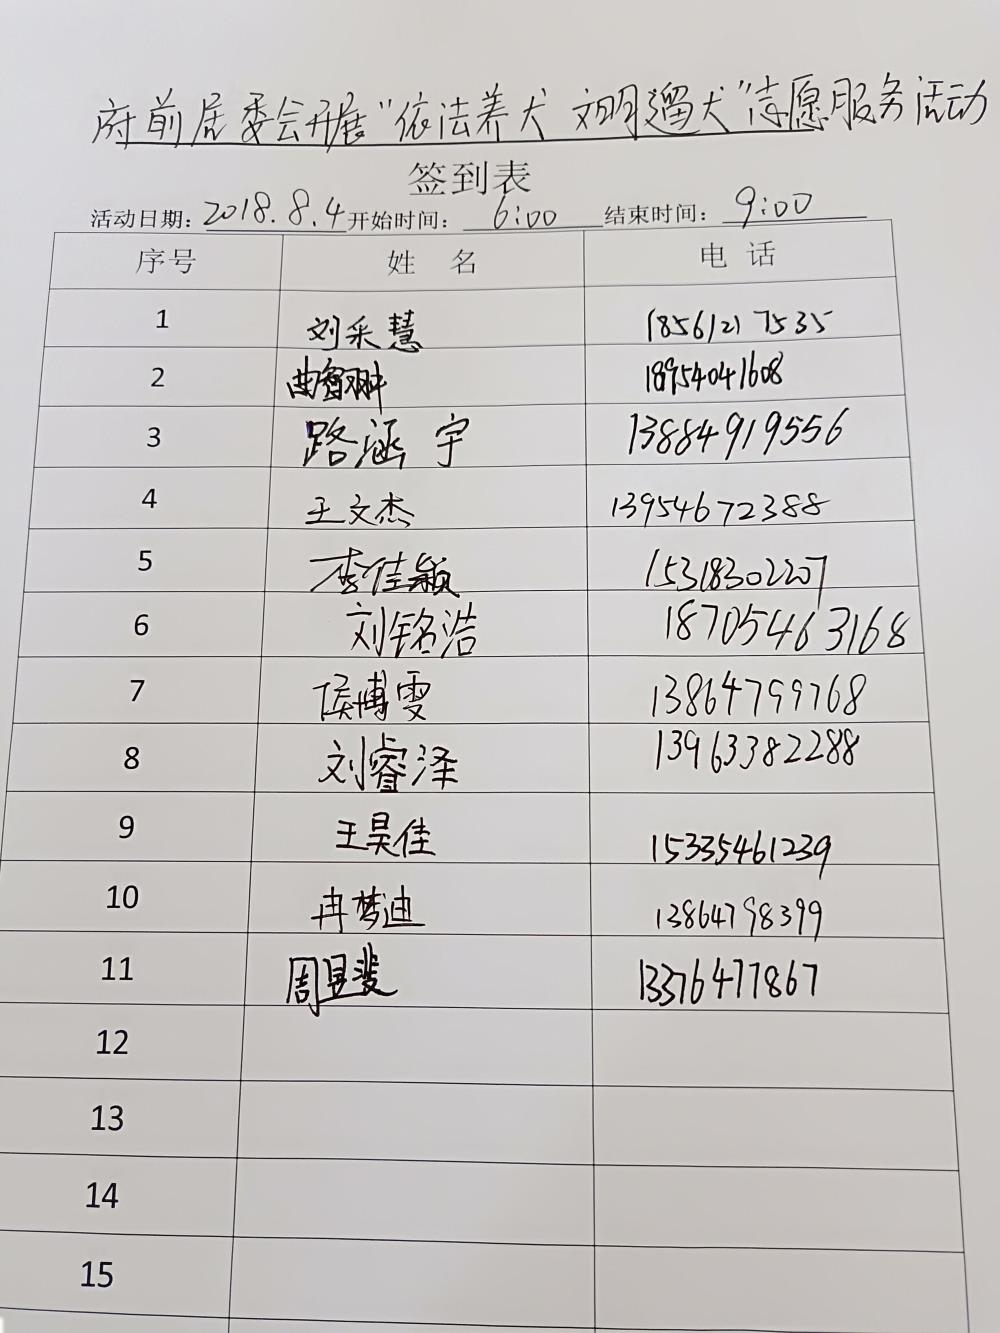 府前居委会开展“依法养犬 文明遛犬”志愿服务活动
签到表
活动日期：2018.8.4 开始时间：6:00 结束时间：9:00
序号 姓 名 电 话
1 刘采慧 18561217535
2 曲睿翀 18954041608
3 路涵宇 13884919556
4 王文杰 13954672388
5 李佳颖 15318302207
6 刘铭浩 18705463168
7 侯博雯 13864799768
8 刘睿泽 13963382288
9 王昊佳 15335461239
10 冉梦迪 13864798399
11 周昱斐 13376477867
12
13
14
15